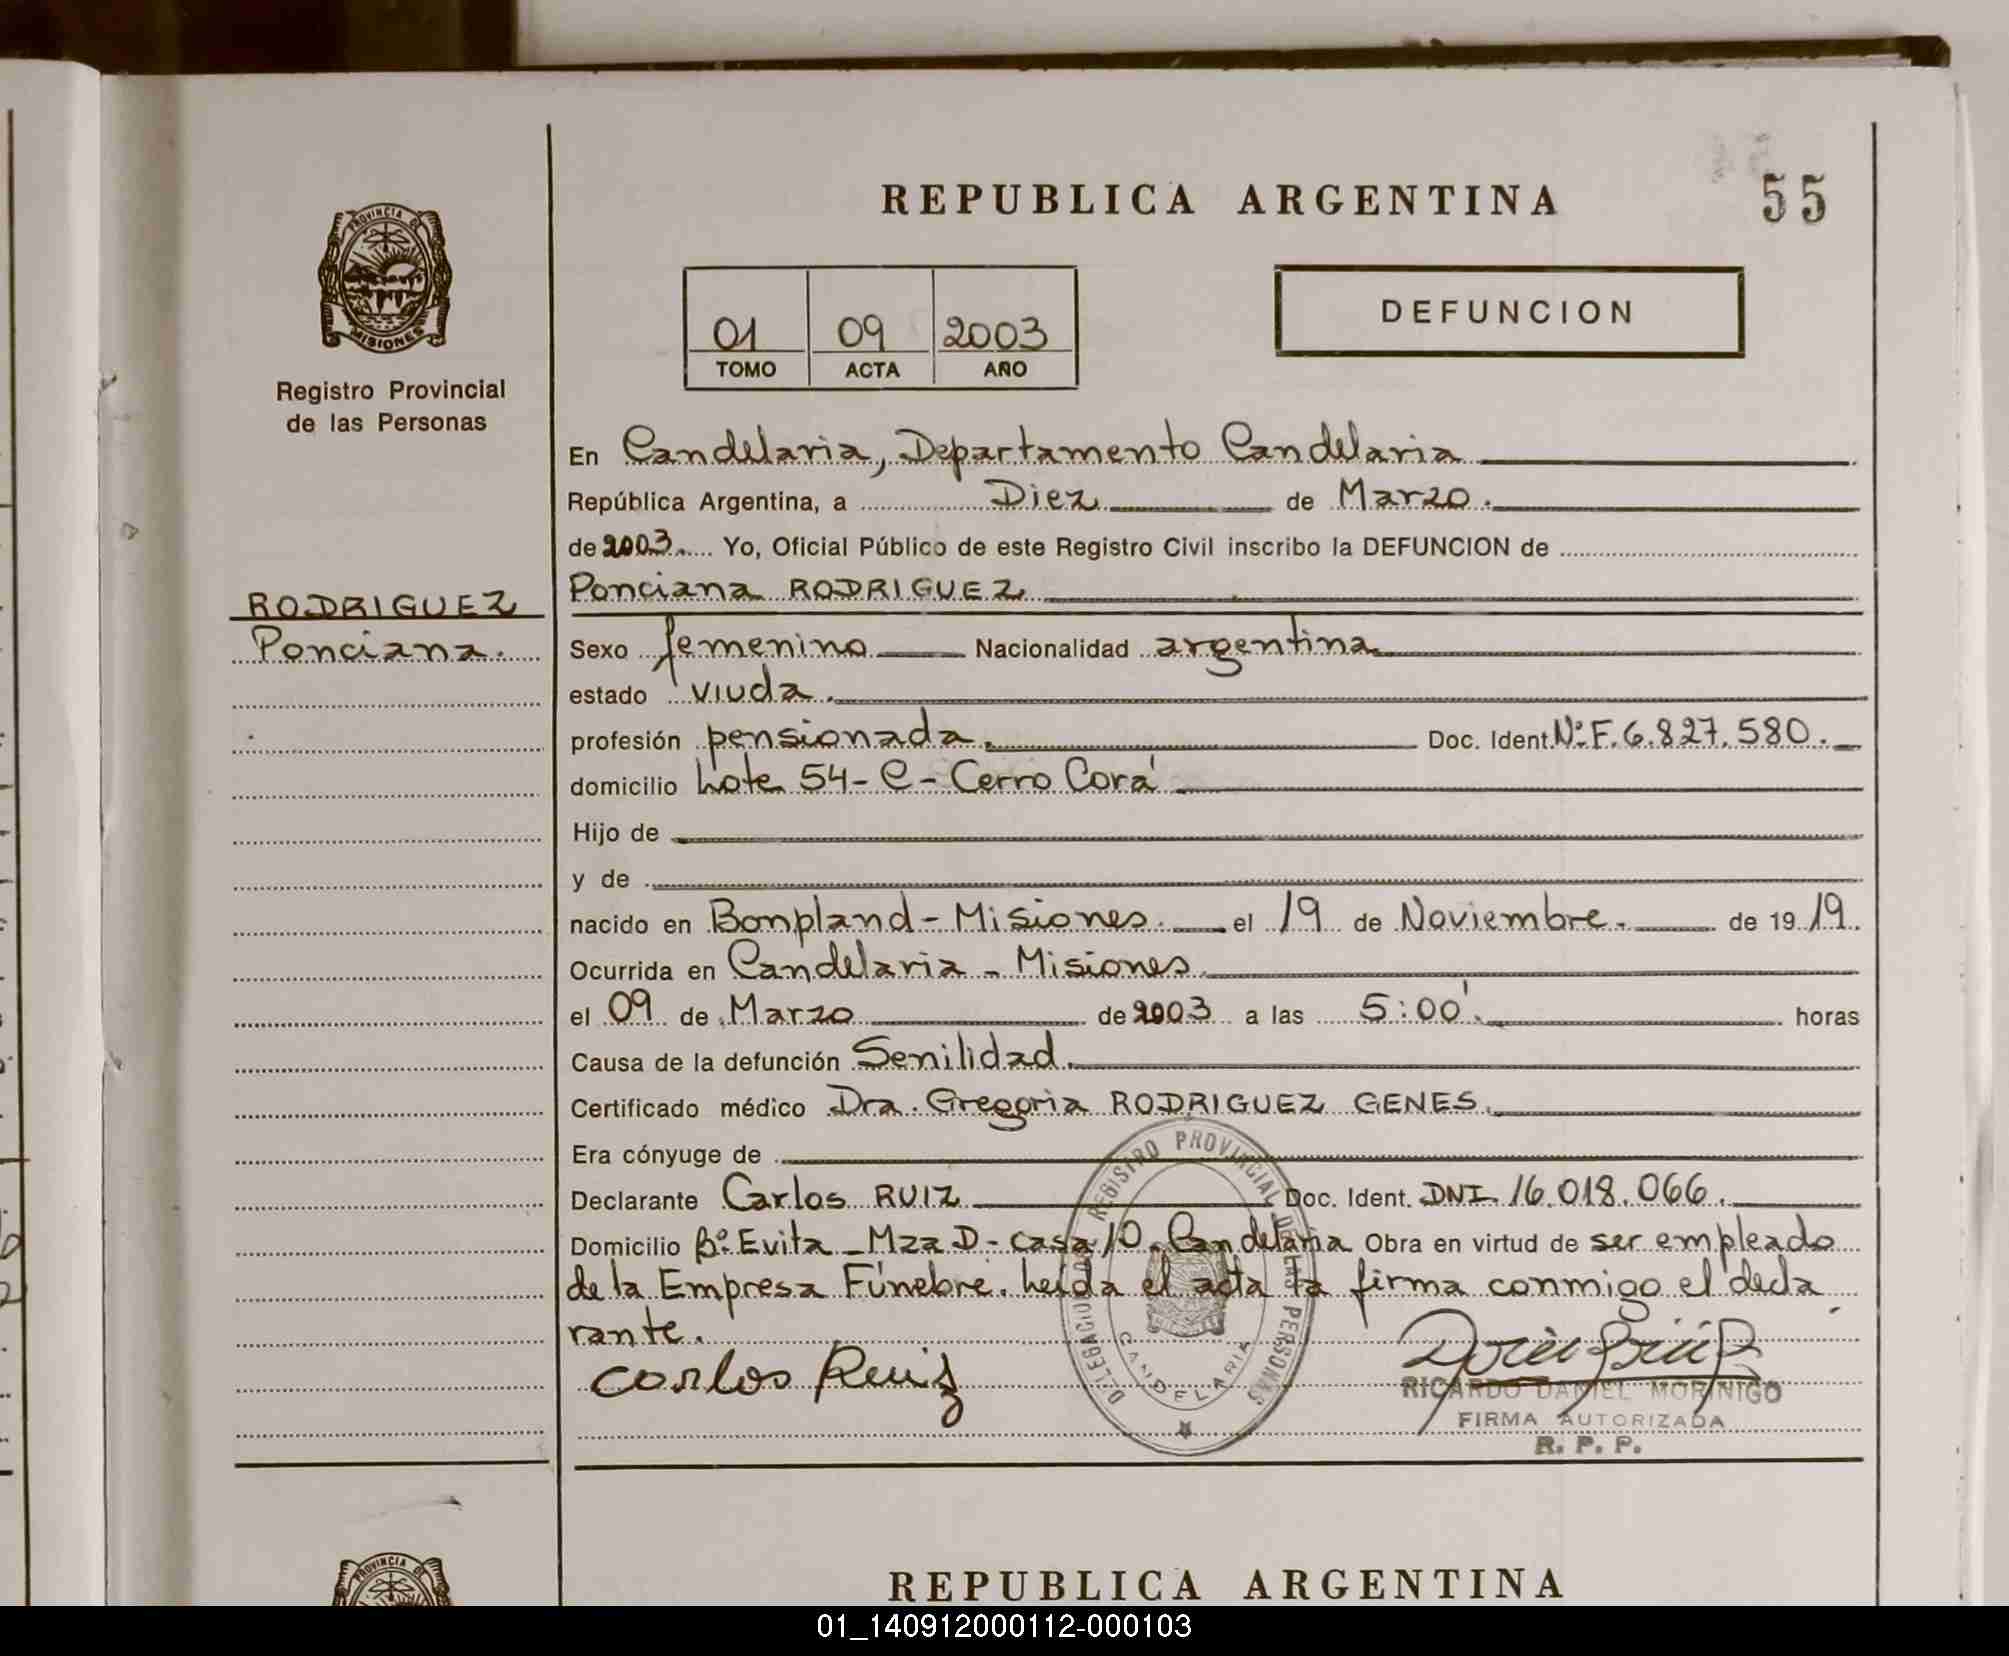 REPUBLICA ARGENTINA
55
PROVINCIA DE
MISIONES
Registro Provincial
de las Personas
01 09 2003
TOMO ACTA AÑO
DEFUNCION
En Candelaria, Departamento Candelaria
República Argentina, a Diez de Marzo.
de 2003. Yo, Oficial Público de este Registro Civil inscribo la DEFUNCION de
Ponciana RODRIGUEZ
RODRIGUEZ
Ponciana.
Sexo femenino Nacionalidad argentina
estado viuda.
profesión pensionada. Doc. Ident. Nº F. 6.827.580.
domicilio Lote 54-C-Cerro Corá
Hijo de
y de
nacido en Bonpland-Misiones. el 19 de Noviembre. de 19 19.
Ocurrida en Candelaria - Misiones
el 09 de Marzo de 2003 a las 5:00'. horas
Causa de la defunción Senilidad.
Certificado médico Dra. Gregoria RODRIGUEZ GENES.
Era cónyuge de
Declarante Carlos RUIZ Doc. Ident. DNI. 16.018.066.
Domicilio Bº. Evita - Mza D - casa 10. Candelaria Obra en virtud de ser empleado
de la Empresa Fúnebre. Leída el acta la firma conmigo el decla
rante.
Carlos Ruiz
DELEGACION REGISTRO PROVINCIAL DE LAS PERSONAS
CANDELARIA
RICARDO DANIEL MORINIGO
FIRMA AUTORIZADA
R. P. P.
PROVINCIA DE
REPUBLICA ARGENTINA
01_140912000112-000103